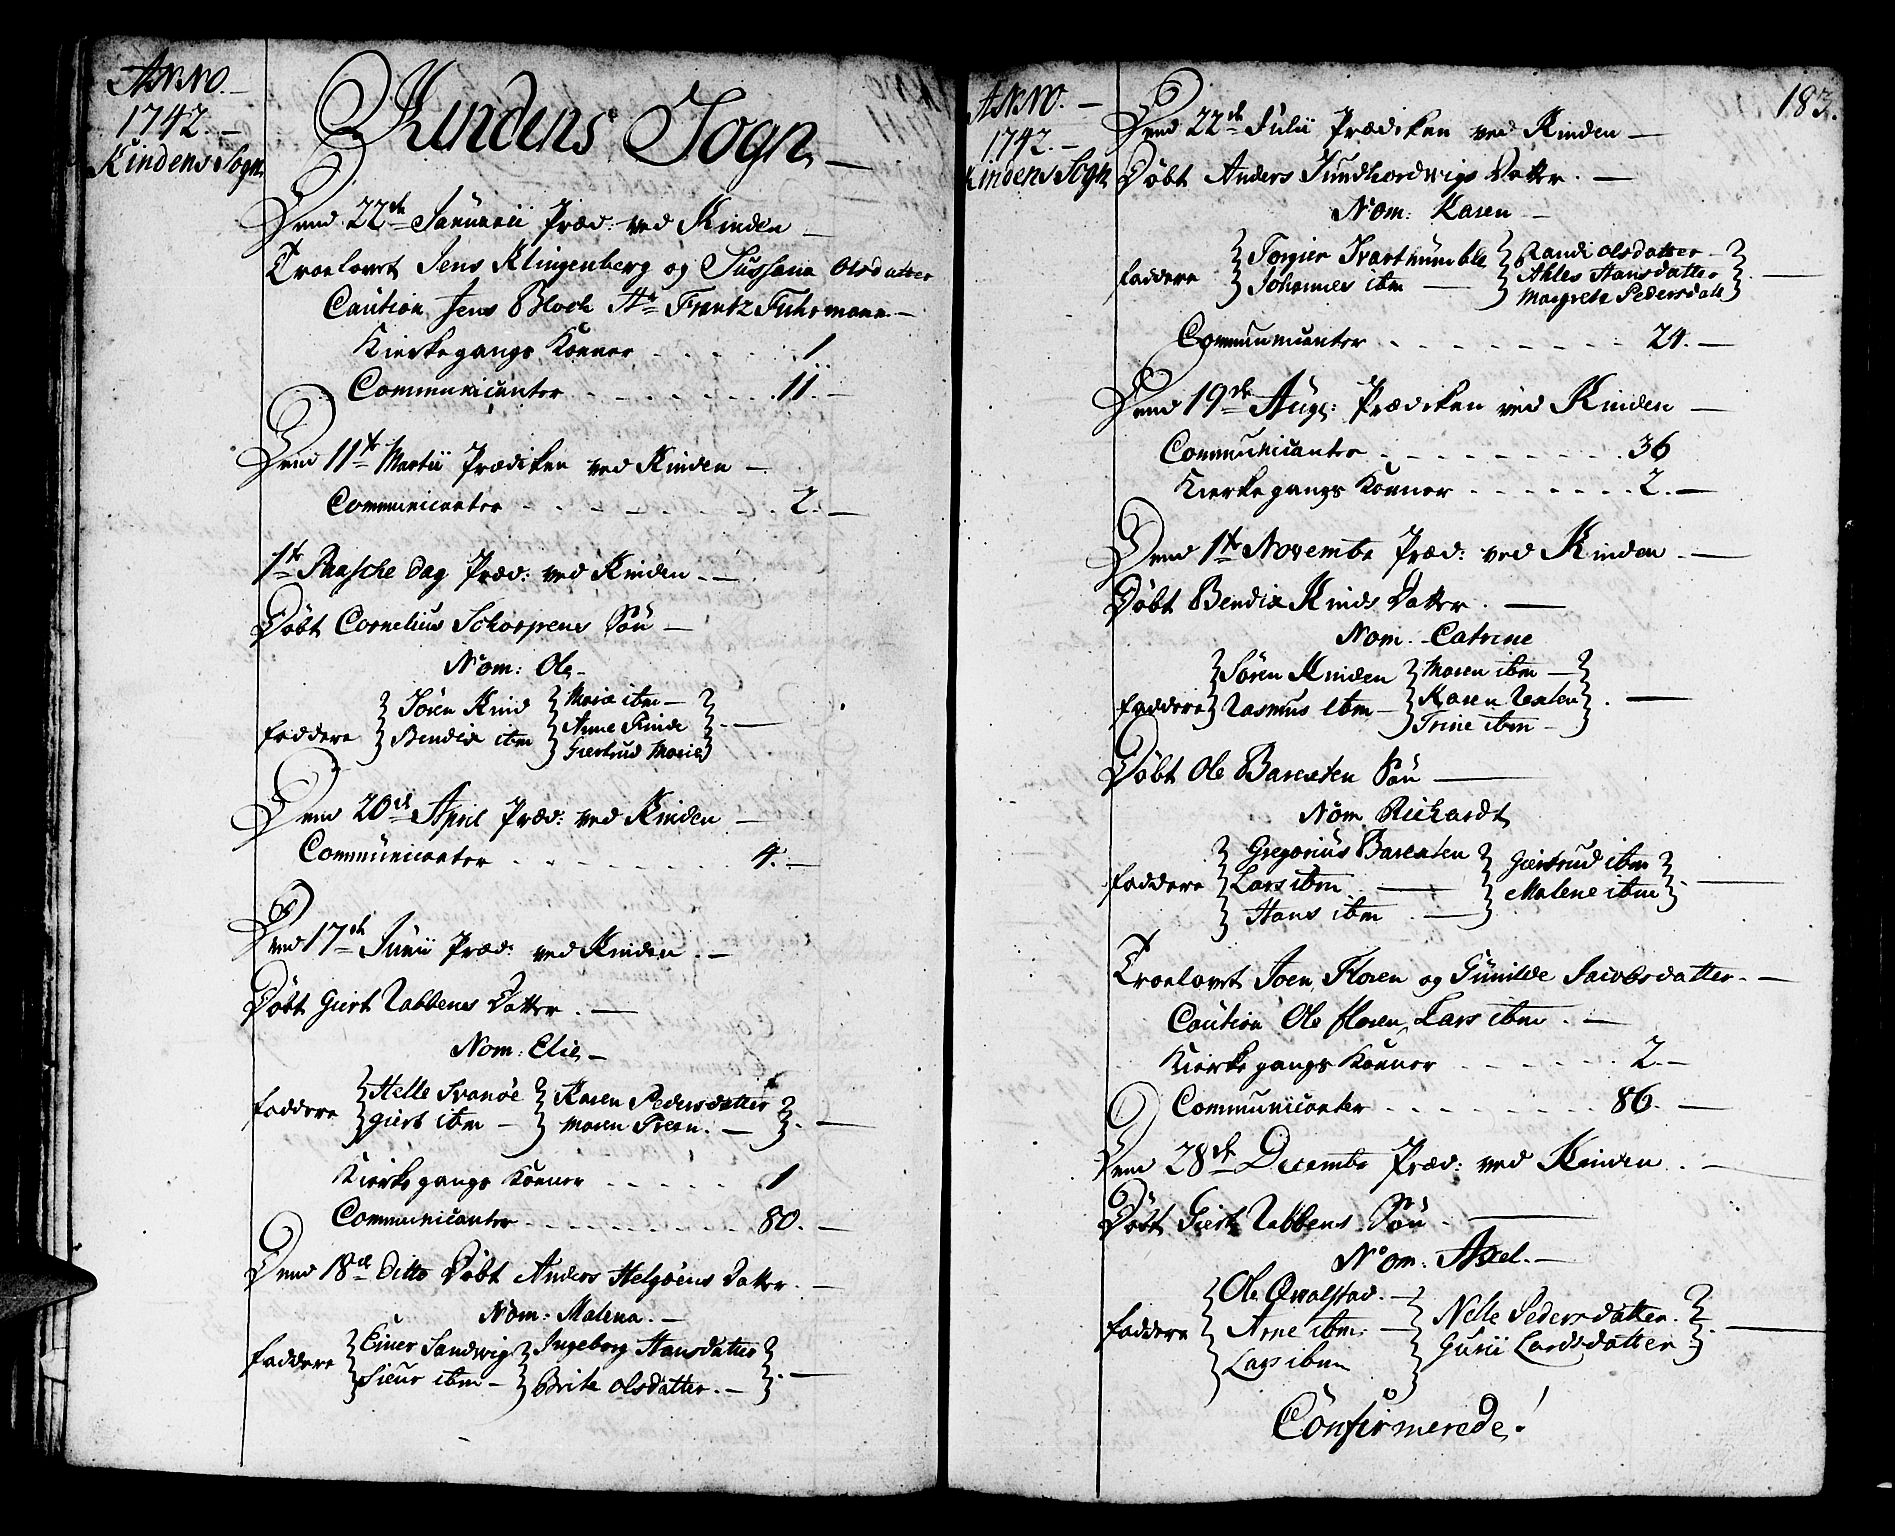 Anno
1742.
Kindens Sogn
Kindens Sogn
Dend 22de Januarii Præd: ved Kinden
Troelovet Jens Klingenberg og Sussana Olsdatter
Caution Jens Block Hr Frantz Fuhrmann
Kierkegangs Koener . . . . . 1
Communicanter . . . . . 11.
Dend 11te Martii Prædiken ved Kinden
Communicanter . . . . . 2.
1te Paasche dag Præd: ved Kinden
Døbt Cornelius Schorpens Søn
Nom: Ole
Faddere { Sören Kind } Maria ibm
Bendix ibm } Anne Kinde
Giertrud Marie
Dend 20de April Præd: ved Kinden
Communicanter . . . . . 4.
Dend 17de Junii Præd: ved Kinden
Døbt Giert Nabbens Datter
Nom: Elie
Faddere { Helle Svanøe } Karen Pedersdatter
Giert ibm } Maren
Kierkegangs Koener . . . . . 1
Communicanter . . . . . 80.
Dend 18de Ditto Døbt Anders Helgøens Datter
Nom: Malena.
Faddere { Einer Sandwig } Ingeborg Hansdatter
Sieur ibm } Brite Olsdatter.
183.
Anno
1742.
Kindens Sogn
Dend 22de Julii Prædiken ved Kinden
Døbt Anders Datter.
Nom: Karen
Faddere { Torgier Svarthumble } Randi Olsdatter
Johannes ibm } Ahles Hansdatter
Margrete Pedersdatt
Communicanter . . . . . 24.
Dend 19de Aug: Prædiken ved Kinden
Communicanter . . . . . 36
Kierkegangs Koener . . . . . 2.
Dend 1te Novembr Præd: ved Kinden
Døbt Bendix Kinds Datter.
Nom. Catrine
Faddere { Sören Kinden } Maren ibm
Rasmus ibm } Karen
Trine ibm
Døbt Ole Barexten Søn
Nom. Richardt
Faddere { Gregorius Barexten } Giertrud ibm
Lars ibm } Malene ibm
Hans ibm
Troelovet Joen Floren og Gunilde Jacobsdatter.
Caution Ole Floren, Lars ibm.
Kierkegangs Koener . . . . . 2.
Communicanter . . . . . 86.
Dend 28de Decembr Præd: ved Kinden.
Døbt Giert Nabbens Søn.
Nom: Axel.
Faddere { Ole Qvalstad. } Nelle Pedersdatter.
Arne ibm. } Gurii Lardsdatter
Lars ibm
Confirmerede!